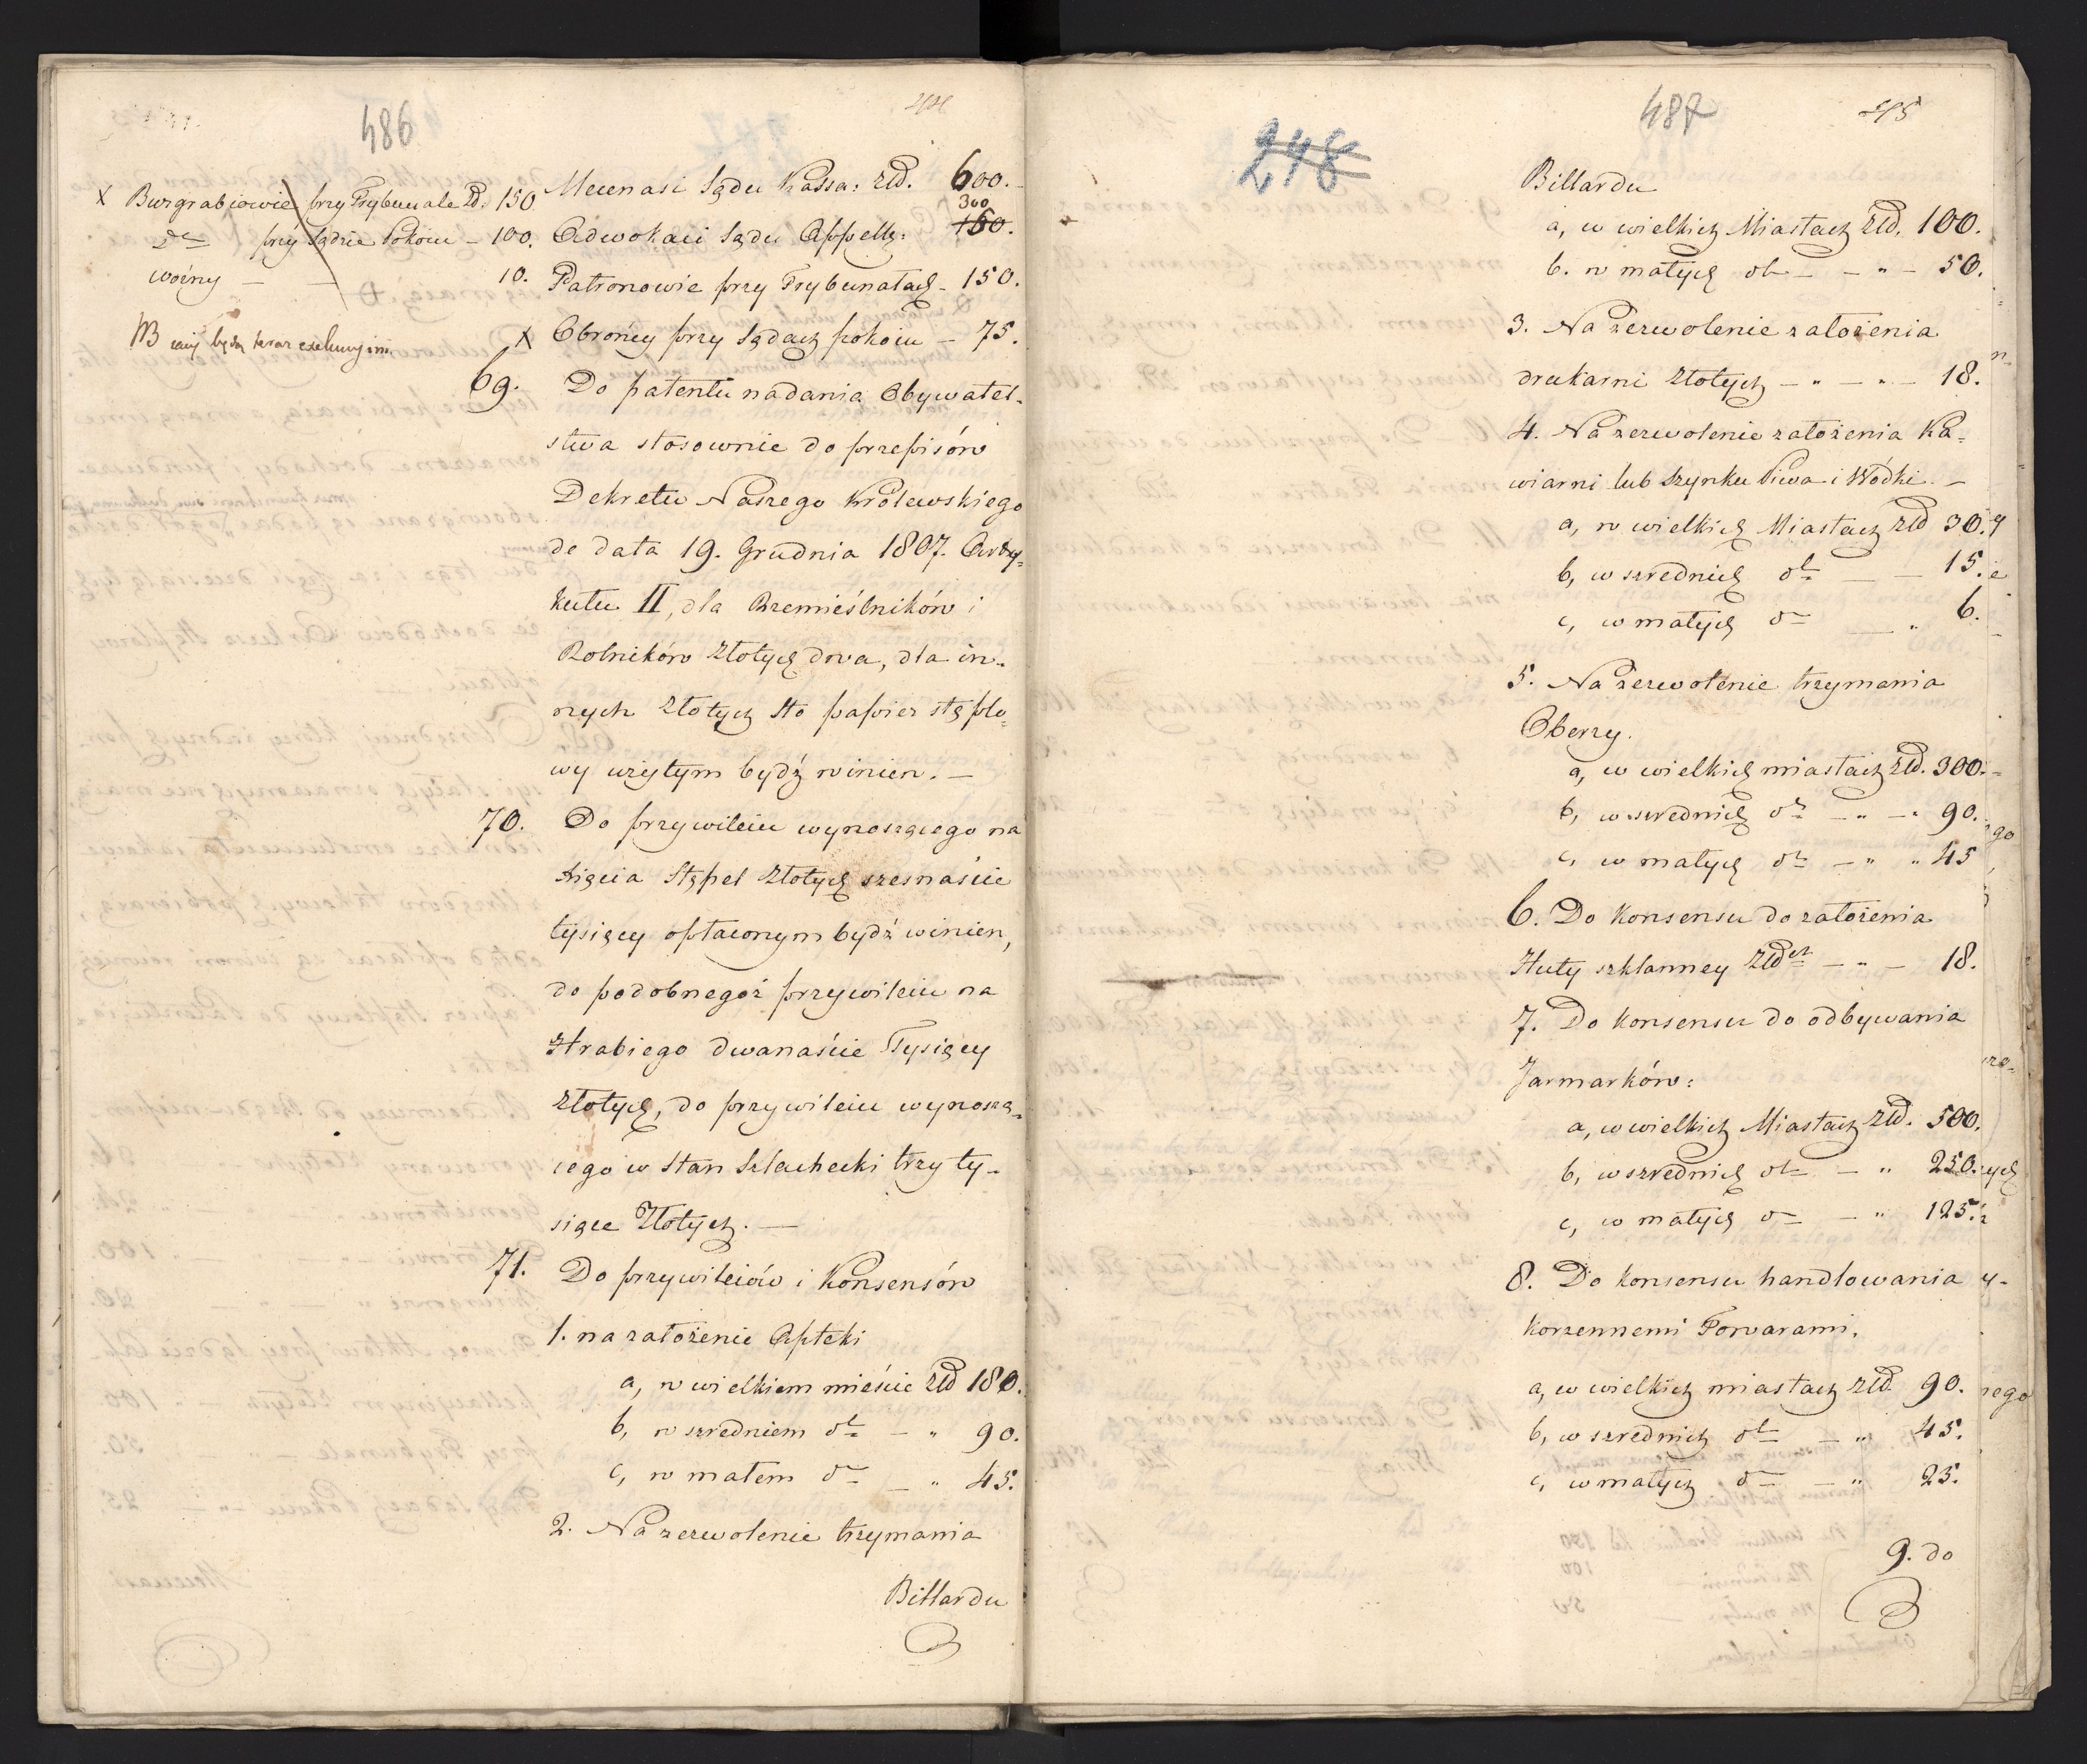 486
X Burgrabiowie przy Trybunale Zł. 150
dto przy Sądzie Pokoiu – 100.
woźny – – 10.
NB
Mecenasi Sądu Kassa: Złł. 600.
300
Adwokaci Sądu Appell: 150.
Patronowie przy Trybunałach – 150.
X Obrońcy przy Sądach pokoiu – 75.
69. Do patentu nadania Obywatel-
stwa stosownie do przepisów
Dekretu Naszego Królewskiego
de data 19. Grudnia 1807. Arty-
kułu II, dla Rzemieślników i
Rolników Złotych dwa, dla in-
nych Złotych sto papier stęplo-
wy użytym bydź winien. –
70. Do przywileiu wynoszącego na
Xięcia Stępel Złotych szesnaście
tysięcy opłaconym bydź winien,
do podobnegoż przywileiu na
Hrabiego dwanaście Tysięcy
Złotych, do przywileiu wynoszą-
cego w Stan Szlachecki trzy ty-
siące Złotych. –
71. Do przywileiów i Konsensów
1. na założenie Apteki
a, w wielkiem mieście Złł 180.
b, w szredniem dto – " 90.
c, w małem dto – " 45.
2. Na zezwolenie trzymania
Billardu
487
245
248
Billardu
a, w wielkich Miastach Złł. 100.
b. w małych dto – – " – 50.
3. Na zezwolenie założenia
drukarni Złotych – " – " – 18.
4. Na zezwolenie założenia Ka-
wiarni lub Szynku Piwa i Wódki. –
a, w wielkich Miastach Złł 30.
b, w szrednich dto – – 15.
c, w małych dto – " 6.
5. Na zezwolenie trzymania
Oberzy.
a, w wielkich miastach Złł. 300.
b, w szrednich dto – " – " 90.
c, w małych dto – " " 45
6. Do Konsensu do założenia
Huty szklanney Złłch – " – 18.
7. Do Konsensu do odbywania
Jarmarków:
a, w wielkich Miastach Złł. 500.
b, w szrednich dto – " 250.
c, w małych dto – " 125.
8. Do Konsensu handlowania
Korzennemi Towarami.
a, w wielkich miastach Złł 90.
b, w szrednich dto – " 45.
c, w małych dto – " 25.
9. do